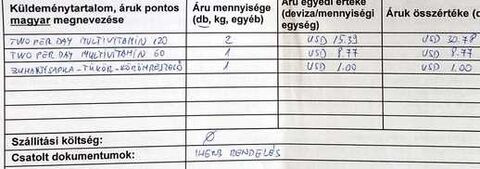 Küldeménytartalom, áruk pontos magyar megnevezése
Áru mennyisége (db, kg, egyéb)
Áru egyedi értéke (deviza/mennyiségi egység)
Áruk összértéke (d
TWO PER DAY MULTIVITAMIN 120 2 USD 15.39 USD 30.78
TWO PER DAY MULTIVITAMIN 60 1 USD 8.77 USD 8.77
ZUHANYSAPKA-TÜKÖR-KÖRÖMRESZELŐ 1 USD 1.00 USD 1.00
Szállítási költség: Ø
Csatolt dokumentumok: IHERB RENDELÉS